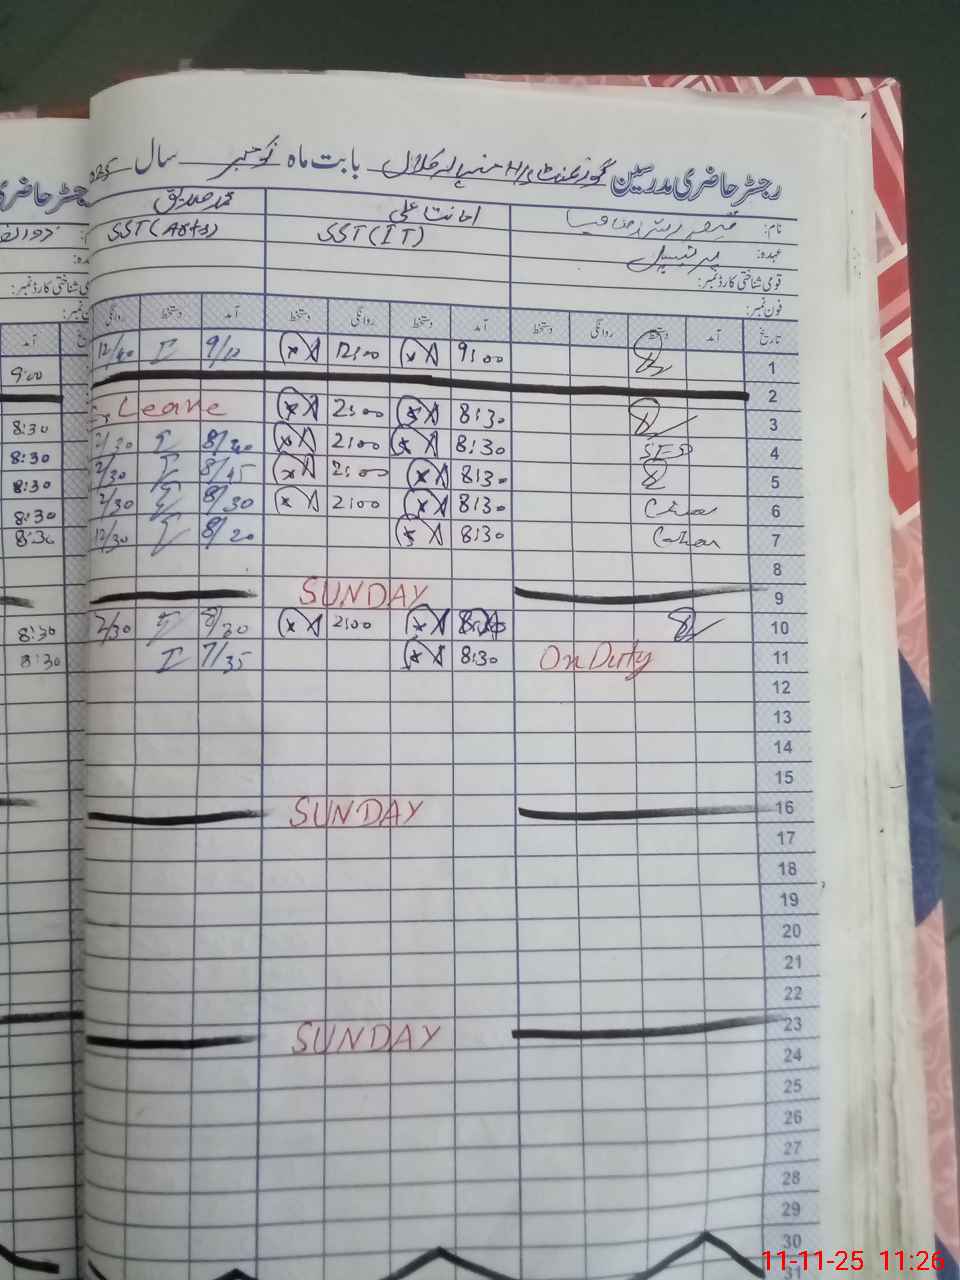 رجسٹر حاضری مدرسین گورنمنٹ بابت ماہ نومبر سال
نام: امانت علی محمد صدیق
عہدہ: پرنسپل SST (IT) SST (Arts)
قومی شناختی کارڈ نمبر:
فون نمبر:
تاریخ آمد دستخط روانگی دستخط آمد دستخط روانگی دستخط آمد دستخط روانگی آمد
1 9:00 12:00 9/10 12/40 9:00
2
3 8:30 2:00 Leave 8:30
4 8:30 2:00 8/20 2/30 8:30
5 8:30 2:00 8/45 2/30 8:30
6 8:30 2:00 8/30 2/30 8:30
7 8:30 8/20 12/30 8:30
8
9 SUNDAY
10 2:00 8/30 2/30 8:30
11 On Duty 8:30 7/35 8:30
12
13
14
15
16 SUNDAY
17
18
19
20
21
22
23 SUNDAY
24
25
26
27
28
29
30
31
11-11-25 11:26